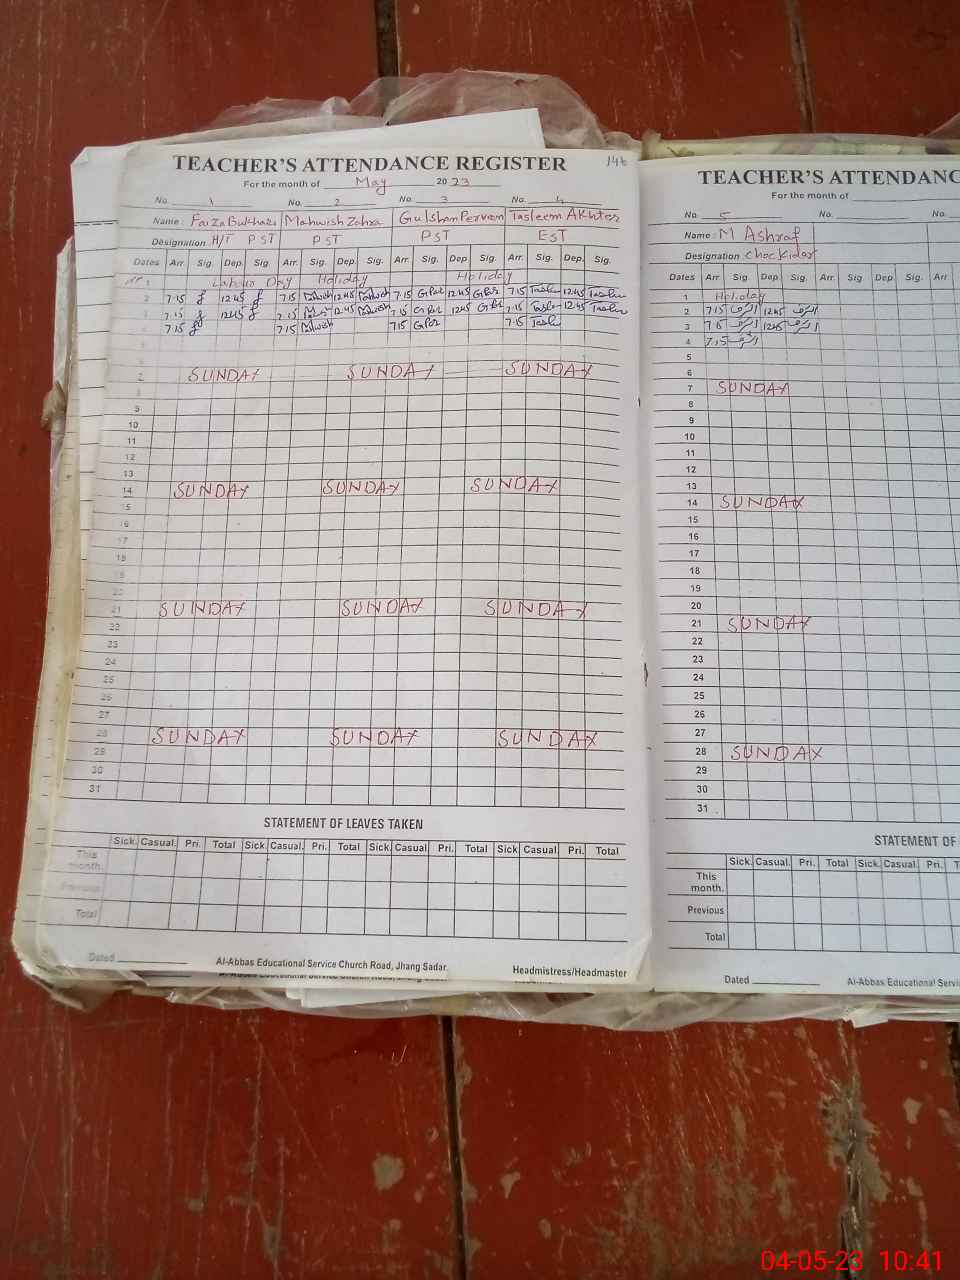 TEACHER'S ATTENDANCE REGISTER 146
For the month of May 2023
No. 1 No. 2 No. 3 No. 4
Name: Faiza Bukhari Mahwish Zahra Gulshan Perveen Tasleem Akhter
Designation H/T PST PST PST EST
Dates Arr. Sig. Dep. Sig. Arr. Sig. Dep. Sig. Arr. Sig. Dep. Sig. Arr. Sig. Dep. Sig.
1 Labour Day Holiday Holiday
2 7.15 1245 7.15 Mahwish 1245 Mahwish 7.15 G.Per 1245 G.Per 7.15 Taslee 1245 Taslee
3 7.15 1245 7.15 1245 Mahwish 7.15 G.Per 1245 G.Per 7.15 Taslee 1245 Taslee
4 7.15 7.15 Mahwish 7.15 G.Per 7.15 Taslee
5
6
7 SUNDAY SUNDAY SUNDAY
8
9
10
11
12
13
14 SUNDAY SUNDAY SUNDAY
15
16
17
18
19
20
21 SUNDAY SUNDAY SUNDAY
22
23
24
25
26
27
28 SUNDAY SUNDAY SUNDAY
29
30
31
STATEMENT OF LEAVES TAKEN
Sick. Casual. Pri. Total Sick. Casual. Pri. Total Sick. Casual Pri. Total Sick. Casual. Pri. Total
This month.
Previous
Total
Dated Al-Abbas Educational Service Church Road, Jhang Sadar. Headmistress/Headmaster
TEACHER'S ATTENDANC
For the month of
No. 5 No. No.
Name: M Ashraf
Designation Chockidar
Dates Arr. Sig. Dep. Sig. Arr. Sig. Dep. Sig. Arr
1 Holiday
2 7.15 اشرف 1245 اشرف
3 7.15 اشرف 1245 اشرف
4 7.15 اشرف
5
6
7 SUNDAY
8
9
10
11
12
13
14 SUNDAY
15
16
17
18
19
20
21 SUNDAY
22
23
24
25
26
27
28 SUNDAY
29
30
31
STATEMENT OF
Sick. Casual. Pri. Total Sick. Casual. Pri. T
This month.
Previous
Total
Dated Al-Abbas Educational Servic
04-05-23 10:41